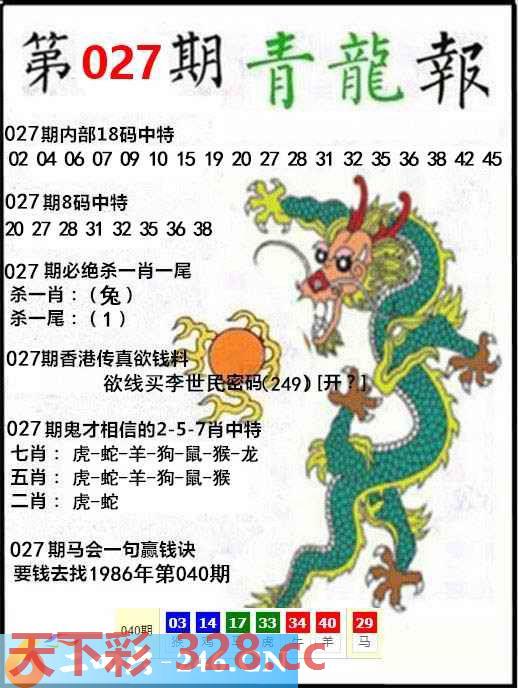 第027期青龍報
027期内部18码中特
02 04 06 07 09 10 15 19 20 27 28 31 32 35 36 38 42 45
027期8码中特
20 27 28 31 32 35 36 38
027 期必绝杀一肖一尾
杀一肖：（兔）
杀一尾：（1）
027期香港传真欲钱料
欲线买李世民密码(249) [开？]
027期鬼才相信的2-5-7肖中特
七肖： 虎-蛇-羊-狗-鼠-猴-龙
五肖： 虎-蛇-羊-狗-鼠-猴
二肖： 虎-蛇
027期马会一句赢钱诀
要钱去找1986年第040期
040期 03 14 17 33 34 40 29
猴 鸡 马 虎 牛 羊 马
天下彩-328.cc